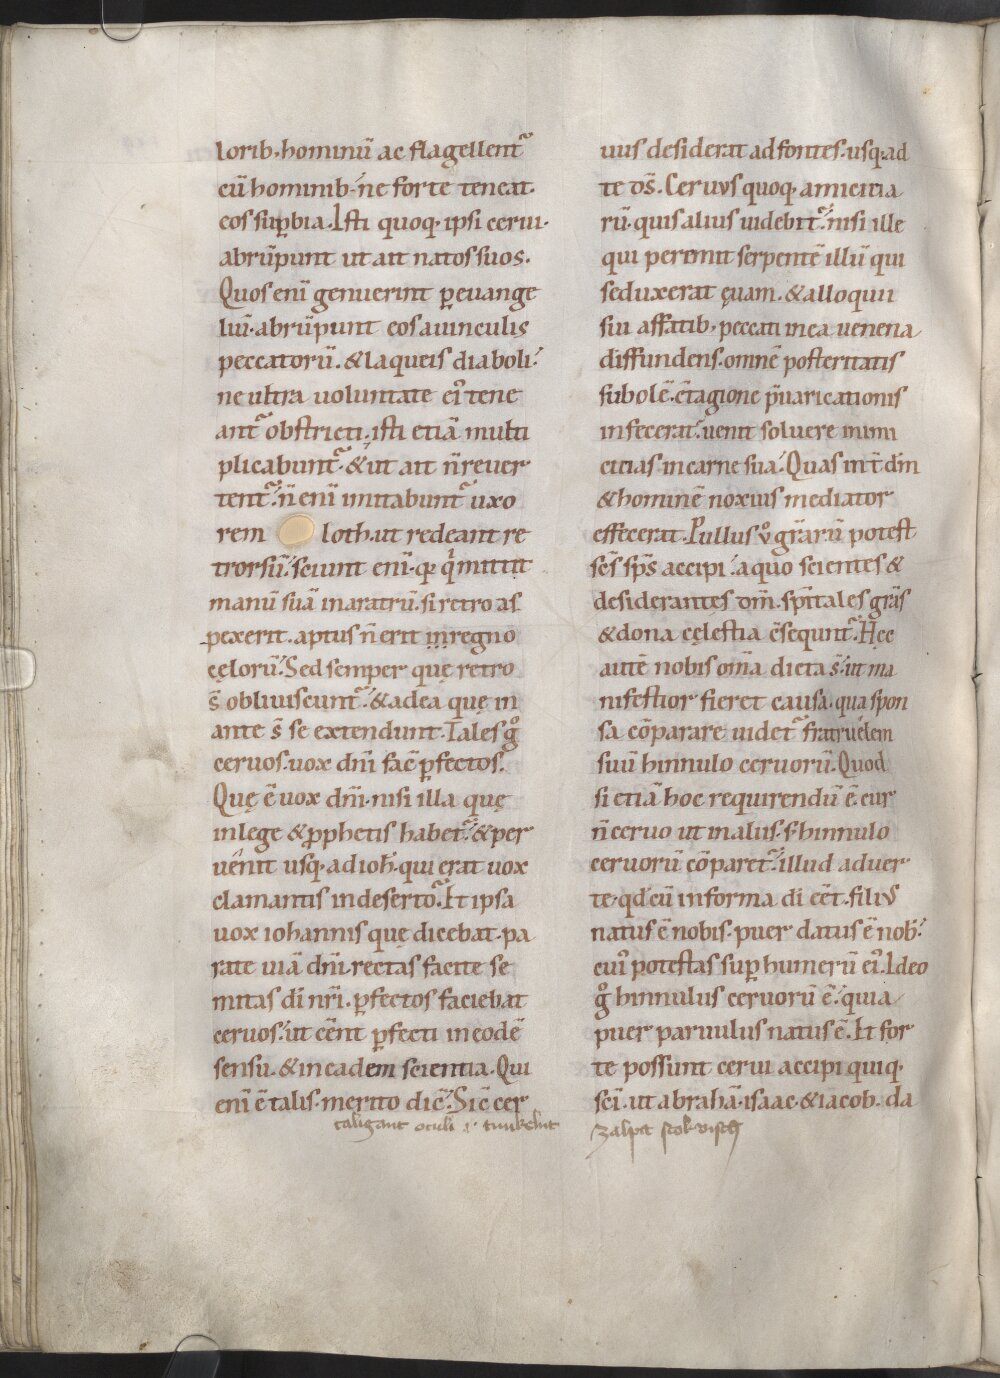 lorib; hominū ac flagellent᷑
cū hominib; ne forte teneat
eos suꝑbia. Isti quoq; ipsi cerui
abrūpunt ut ait natos suos.
Quos eni᷑ genuerint ꝑ euange
liū. abrūpunt eos a uinculis
peccatorū. & laqueis diaboli.
ne ultra uoluntate ei᷒ tene
ant᷑ obstricti. isti etiā multi
plicabunt᷑. & ut ait n̄ reuer
tent᷑. n̄ enī imitabunt᷑ uxo
rem loth. ut redeant re
trorsū. sciunt enī. qꝛ qͥ mittit
manū suā in aratrū. si retro as
pexerit. aptus n̄ erit in regno
cęlorū. Sed semper quę retro
s̄ obliuiscunt᷑. & ad ea quę in
ante s̄ se extendunt. Tales gͦ
ceruos. uox dn̄i fac̄ ꝑfectos.
Quę ē uox dn̄i. nisi illa quę
in lege & ꝓphetis habet᷑. & per
uenit usq; ad ioh̄. qui erat uox
clamantis in deserto. Et ipsa
uox iohannis quę dicebat. pa
rate uiā dn̄i. rectas facite se
mitas dī nr̄i. ꝑfectos faciebat
ceruos. ut cēnt ꝑfecti in eodē
sensu. & in eadem scientia. Qui
enī ē talis. merito dic̄. Sic̄ cer
caligant oculi .i. tunkelint
uus desiderat ad fontes. usq; ad
te ds̄. Ceruus quoq; amicitia
rū. quis alius uidebit᷑. nisi ille
qui perimit serpentē illū qui
seduxerat ęuam. & alloquii
sui affatib; peccati in ea uenena
diffundens. omnē posteritatis
subolē. c̄tagione p̄uaricationis
infecerat. uenit soluere inimi
citias. in carne sua. Quas int̄ dm̄
& hominē noxius mediator
effecerat. Pullus ū grārū potest
sc̄s sp̄s accipi. a quo scientes &
desiderantes dm̄. sp̄itales grās
& dona cęlestia c̄sequnt᷑. Hęc
autē nobis om̄a dicta s̄. ut ma
nifestior fieret causa. qua spon
sa cōparare uidet᷑ fratruelem
suū hinnulo ceruorū. Quod
si etiā hoc requirendū ē. cur
n̄ ceruo ut in aliis. s; hinnulo
ceruorū cōparet᷑. illud aduer
te. qd̄ cū in forma dī cēt. filiꝰ
natus ē nobis. puer datus ē nob̄.
cui᷒ potestas suꝑ humerū ei᷒. Ideo
gͦ hinnulus ceruorū ē. quia
puer paruulus natus ē. Et for
te possunt cerui accipi quiq;
sc̄i. ut abrahā. isaac. & iacob. da
zalpet stok visch